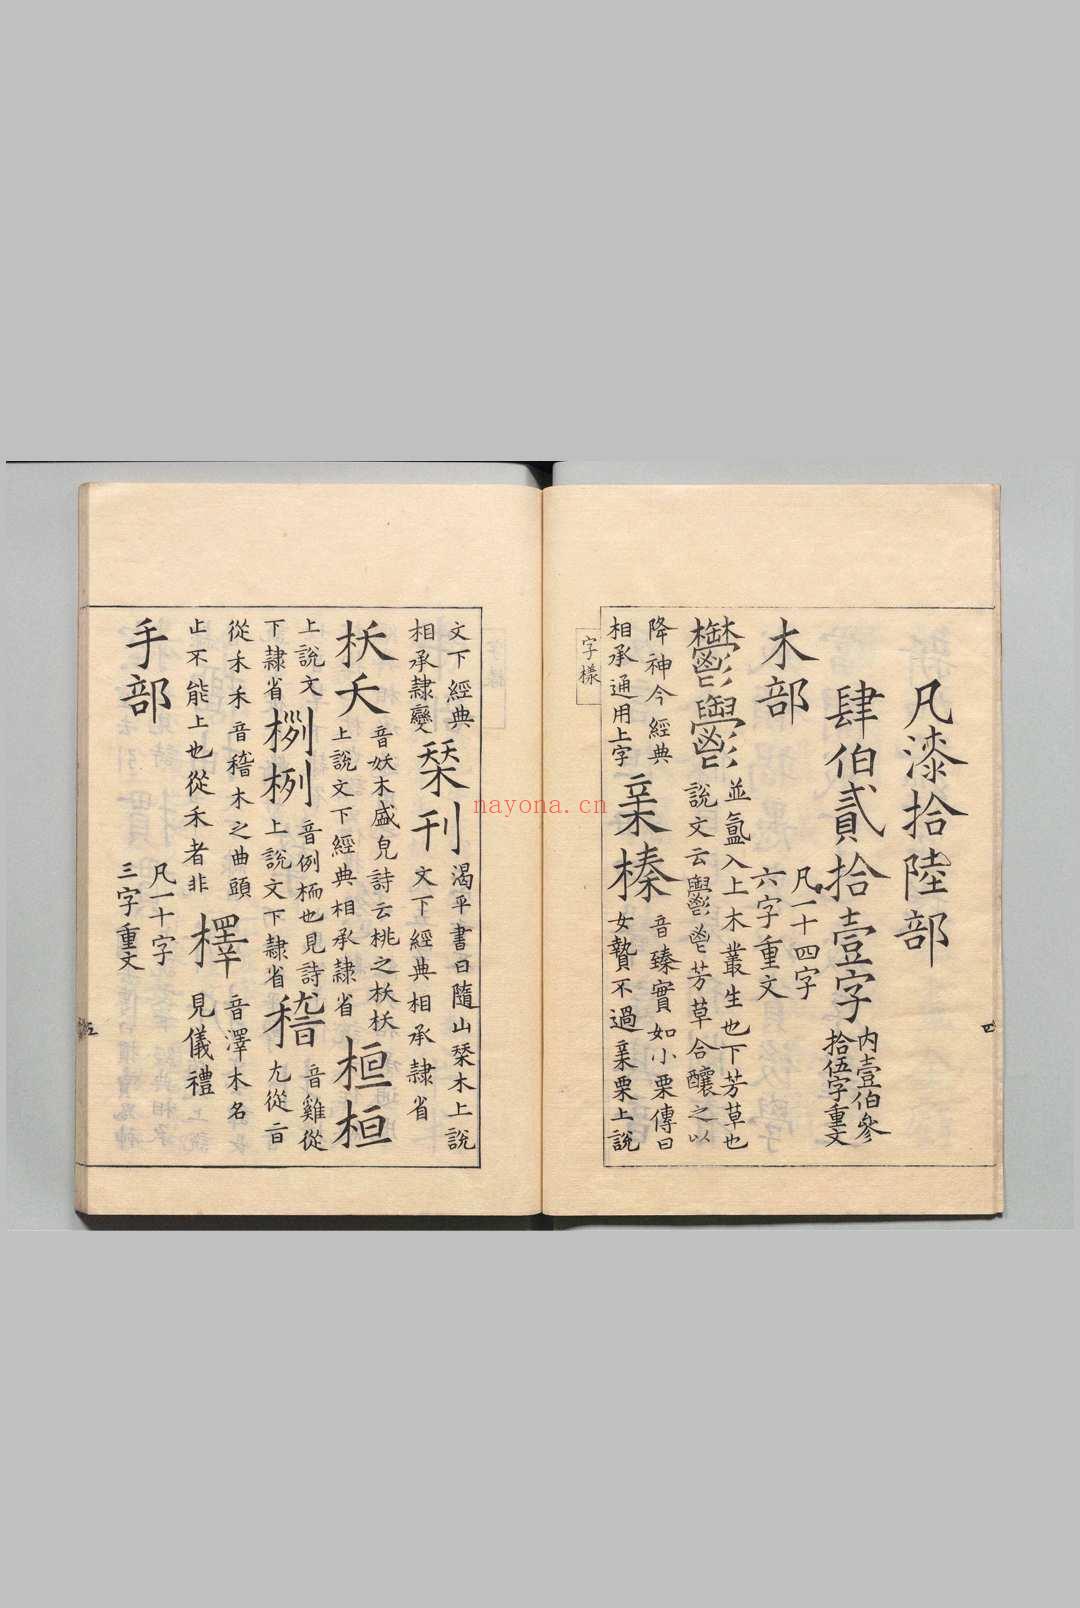 凡漆拾陸部
肆伯貳拾壹字
内壹伯參
拾伍字重文
木部
凡一十四字
六字重文
鬱
並氳入上木叢生也下芳草也
說文云鬱鬯芳草合釀之以
降神今經典
相承通用上字
亲榛
音臻實如小栗傳曰
女贄不過亲栗上說
字樣
四
文下經典
相承隸變
栞刊
渴平書曰隨山栞木上說
文下經典相承隸省
枖夭
音妖木盛皃詩云桃之枖枖
上說文下經典相承隸省
桓桓
上說文
下隸省
栵
音例栭也見詩
上說文下隸省
稽
音雞從
尤從旨
從禾禾音稽木之曲頭
止不能上也從禾者非
檡
音澤木名
見儀禮
手部
凡一十字
三字重文
五
nayona.cn